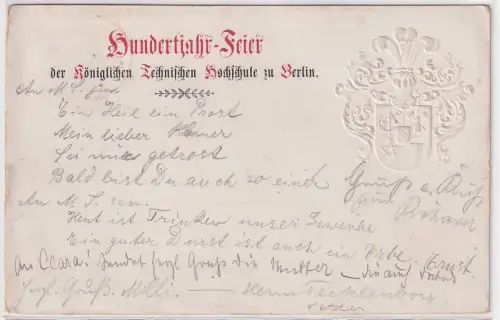 Hundertjahr-Feier
der Königlichen Technischen Hochschule zu Berlin.
An M. S. jun.
Ein Heil ein Prost
Mein lieber Kleiner
Sei nur getrost
Bald bist Du auch so einer
Gruß u. Kuß
An M. S. sen.
Heut ist Trinken unser Gewerbe
Ein guter Durst ist auch ein Erbe.
Ernst.
An Clara! sendet herzl. Gruß die Mutter
Herzl. Gruß. Milli. — Hermi Tecklenborg